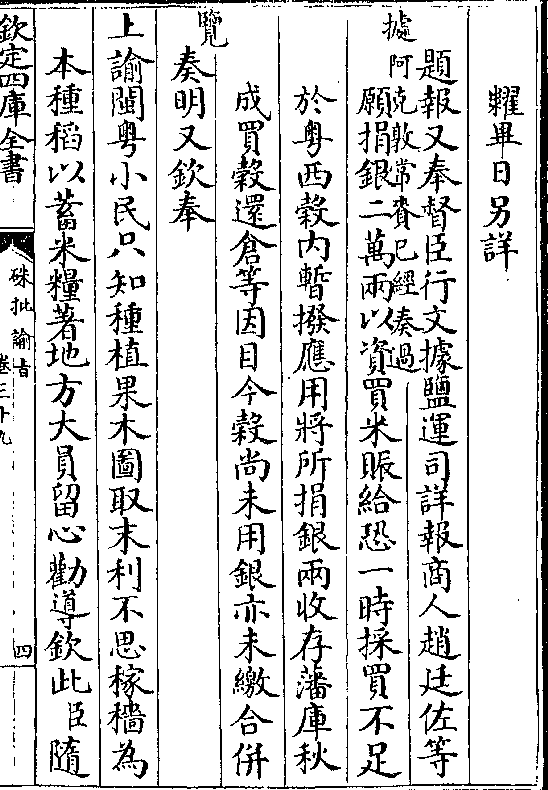 糶畢日另詳
題報又奉督臣行文據鹽運司詳報商人趙廷佐等
據阿克敦常賚已經奏過
願捐銀二萬兩以資買米賑給恐一時採買不足
於粤西榖內暫撥應用將所捐銀兩收存藩庫秋
成買榖還倉等因目今榖尚未用銀亦未繳合併
覽
奏明又欽奉
上諭閩粤小民只知種植果木圖取末利不思稼穡為
本種稻以蓄米糧著地方大員留心勸導欽此臣隨
欽定四庫全書
硃批諭旨
卷三十九
四